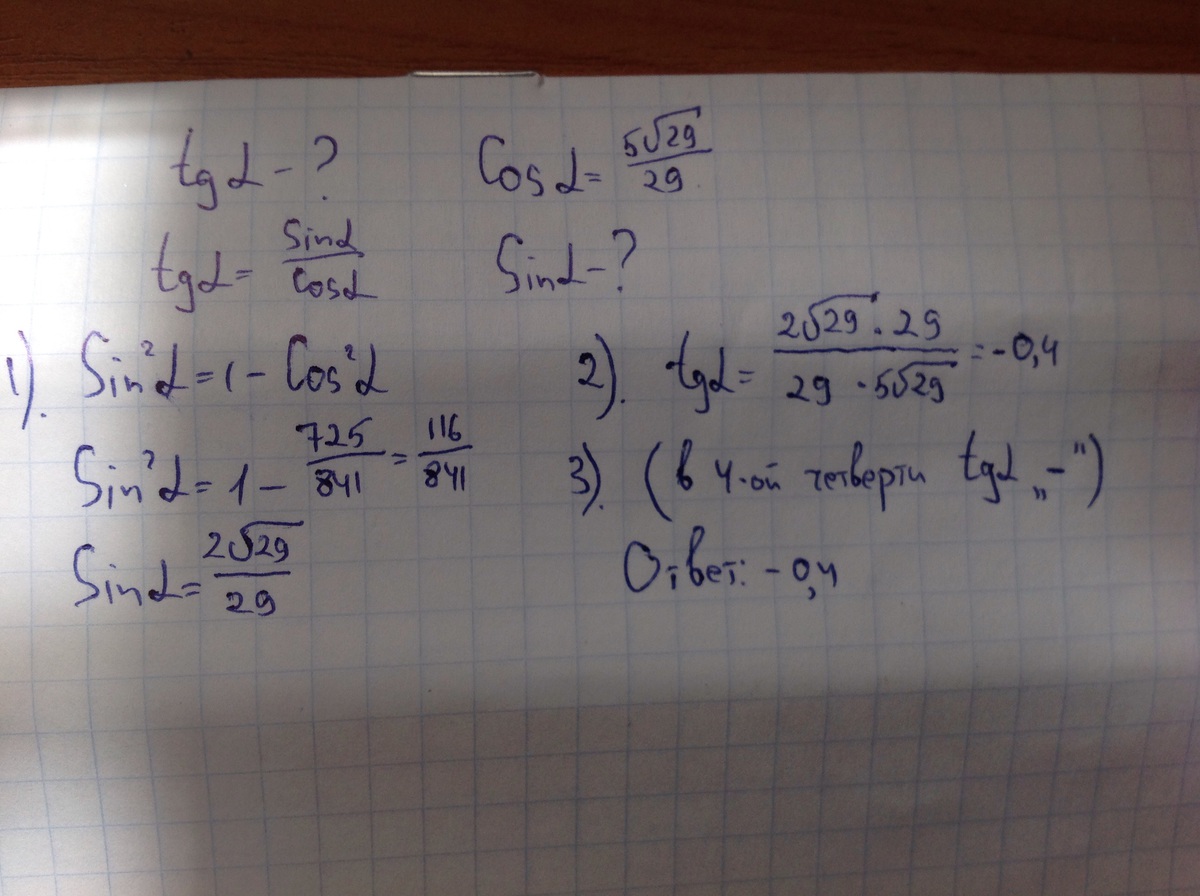 tgα - ? Cosα = 5√29/29
tgα = Sinα/Cosα Sinα - ?
1). Sin²α = 1 - Cos²α
Sin²α = 1 - 725/841 = 116/841
Sinα = 2√29/29
2). tgα = 2√29 · 29/29 · 5√29 = -0,4
3). (в 4-ой четверти tgα „-")
Ответ: -0,4